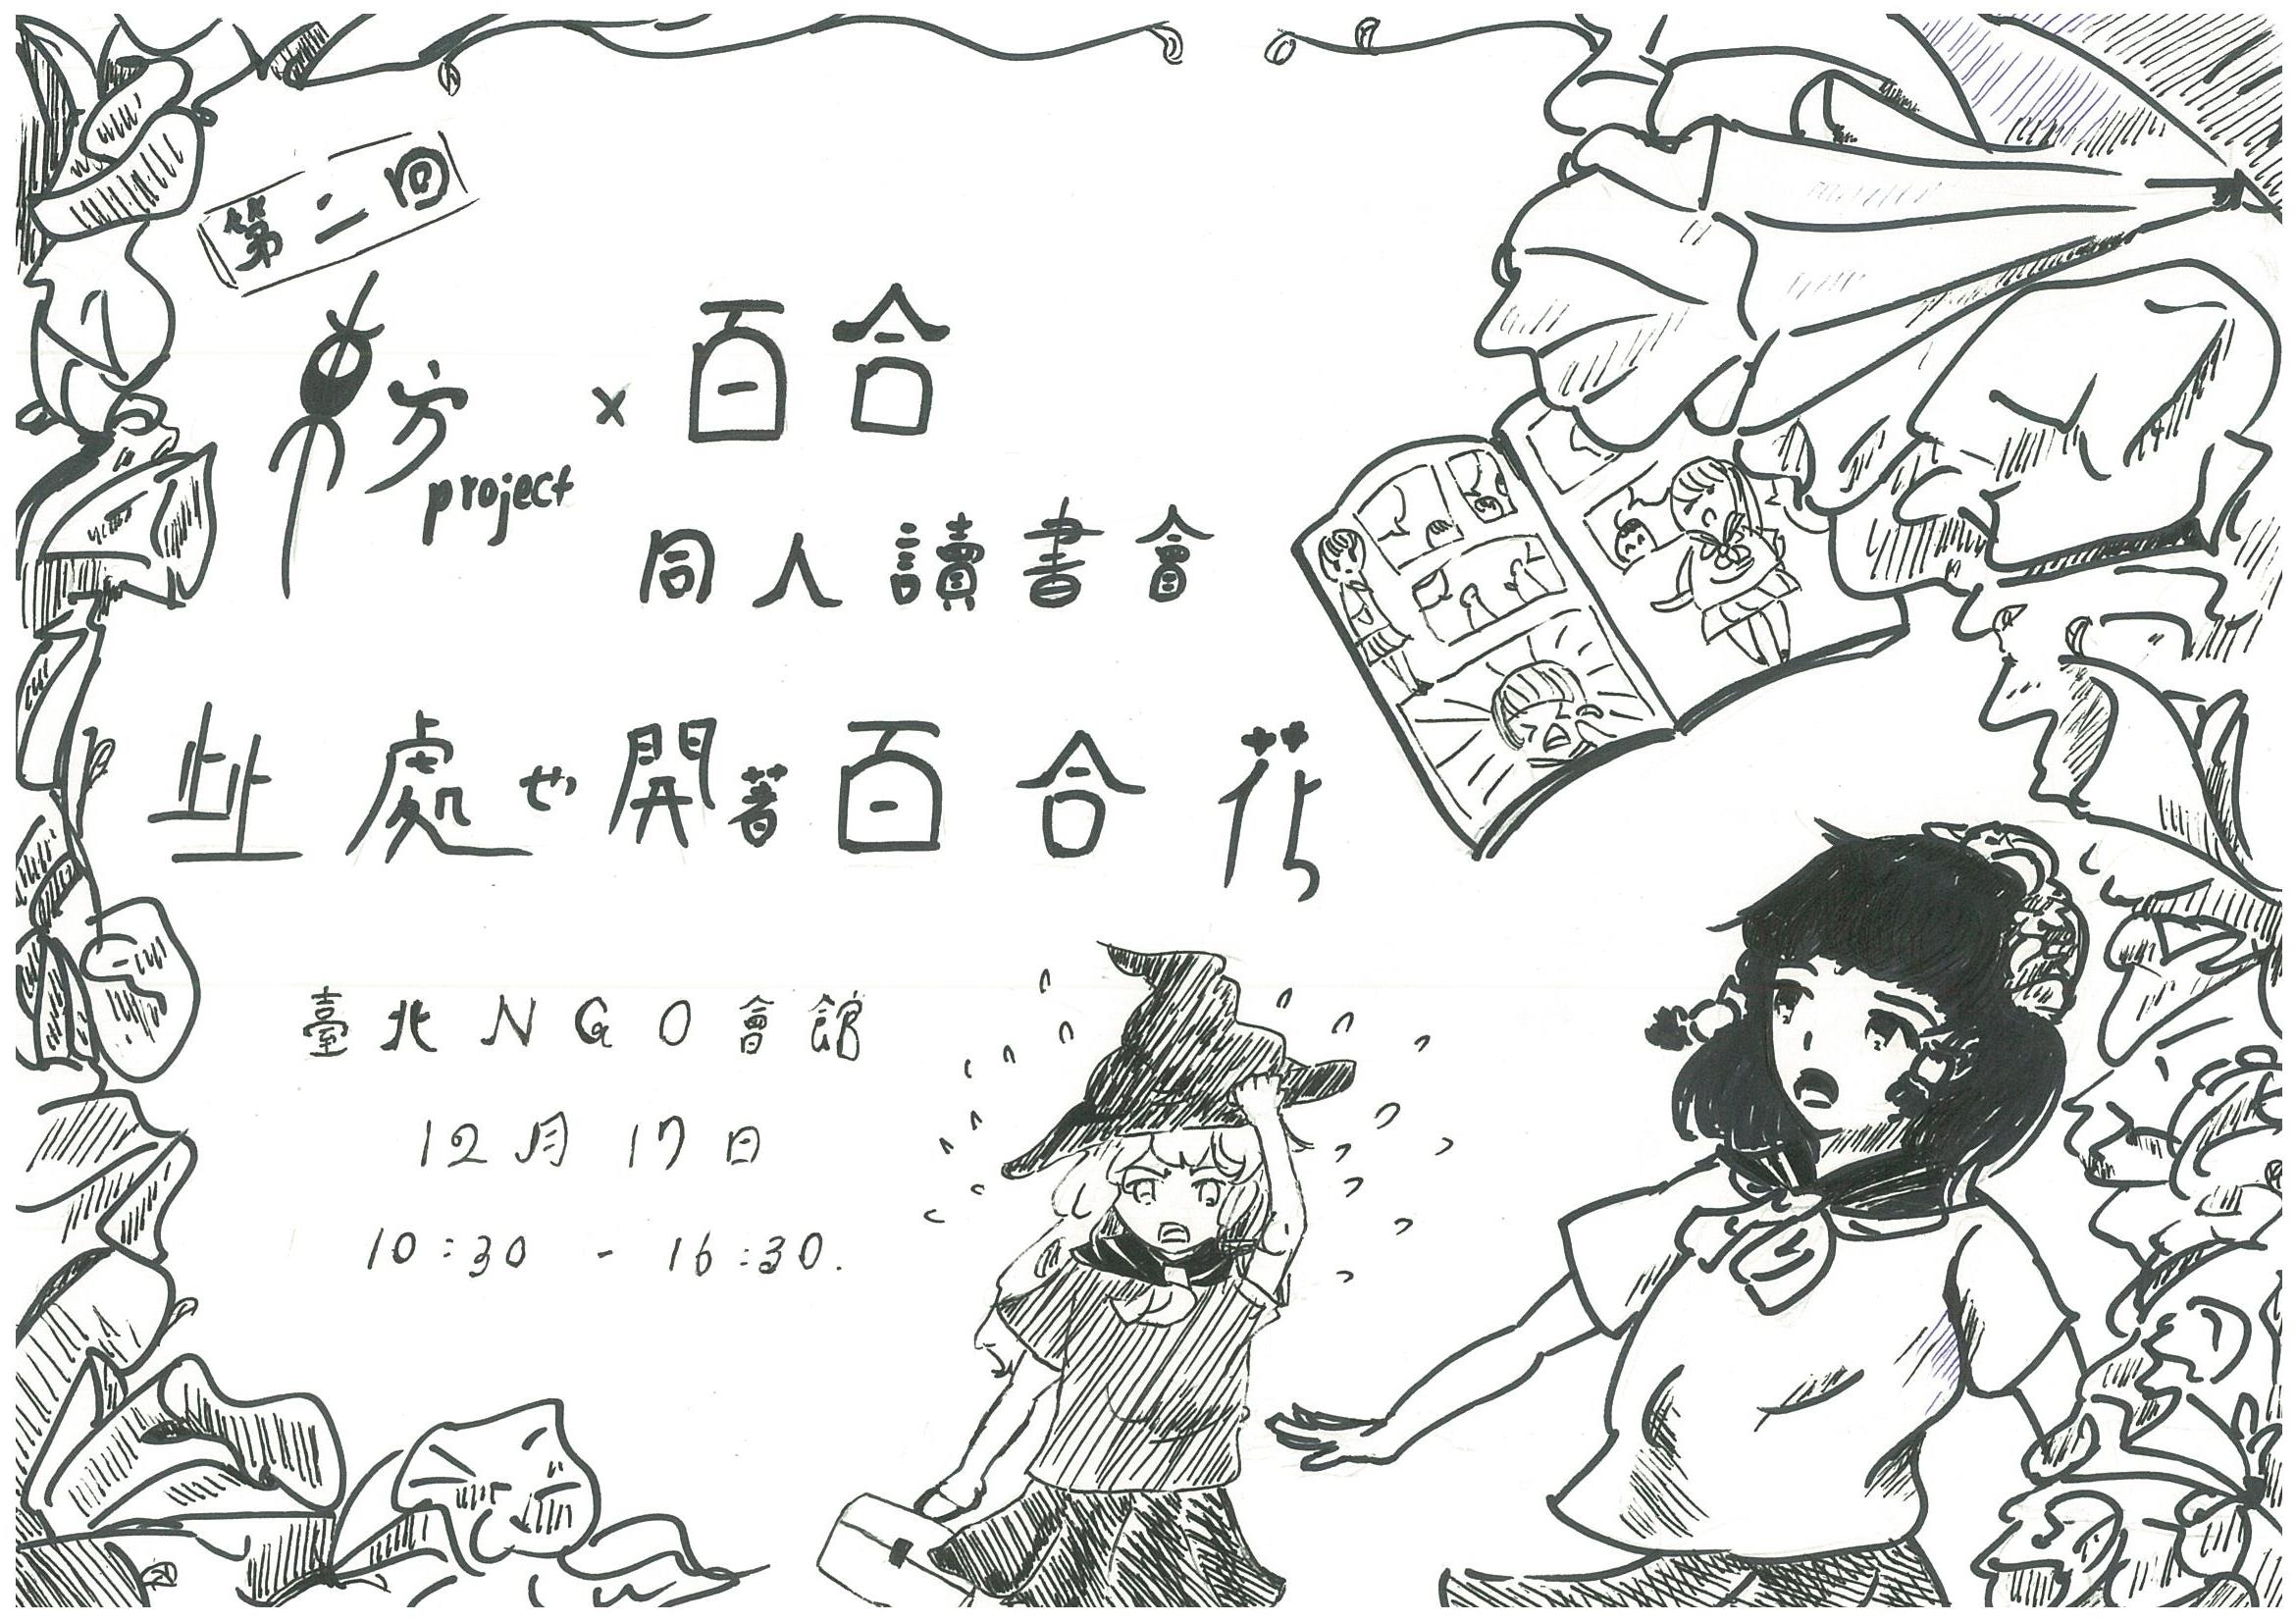 第二回
東方project × 百合
同人讀書會
此處也開著百合花
臺北NGO會館
12月17日
10:30 - 16:30.